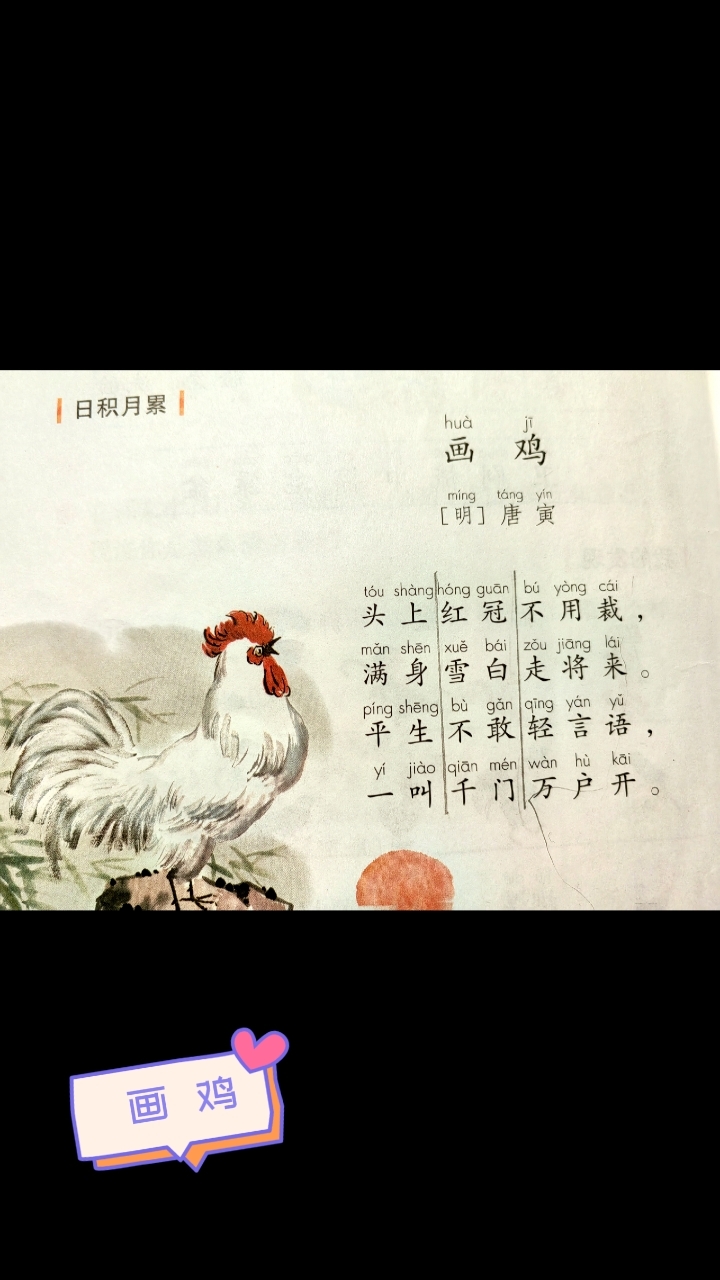 日积月累
huà jī
画 鸡
míng táng yín
[明] 唐寅
tóu shàng hóng guān bú yòng cái
头上红冠不用裁，
mǎn shēn xuě bái zǒu jiāng lái
满身雪白走将来。
píng shēng bù gǎn qīng yán yǔ
平生不敢轻言语，
yí jiào qiān mén wàn hù kāi
一叫千门万户开。
画 鸡